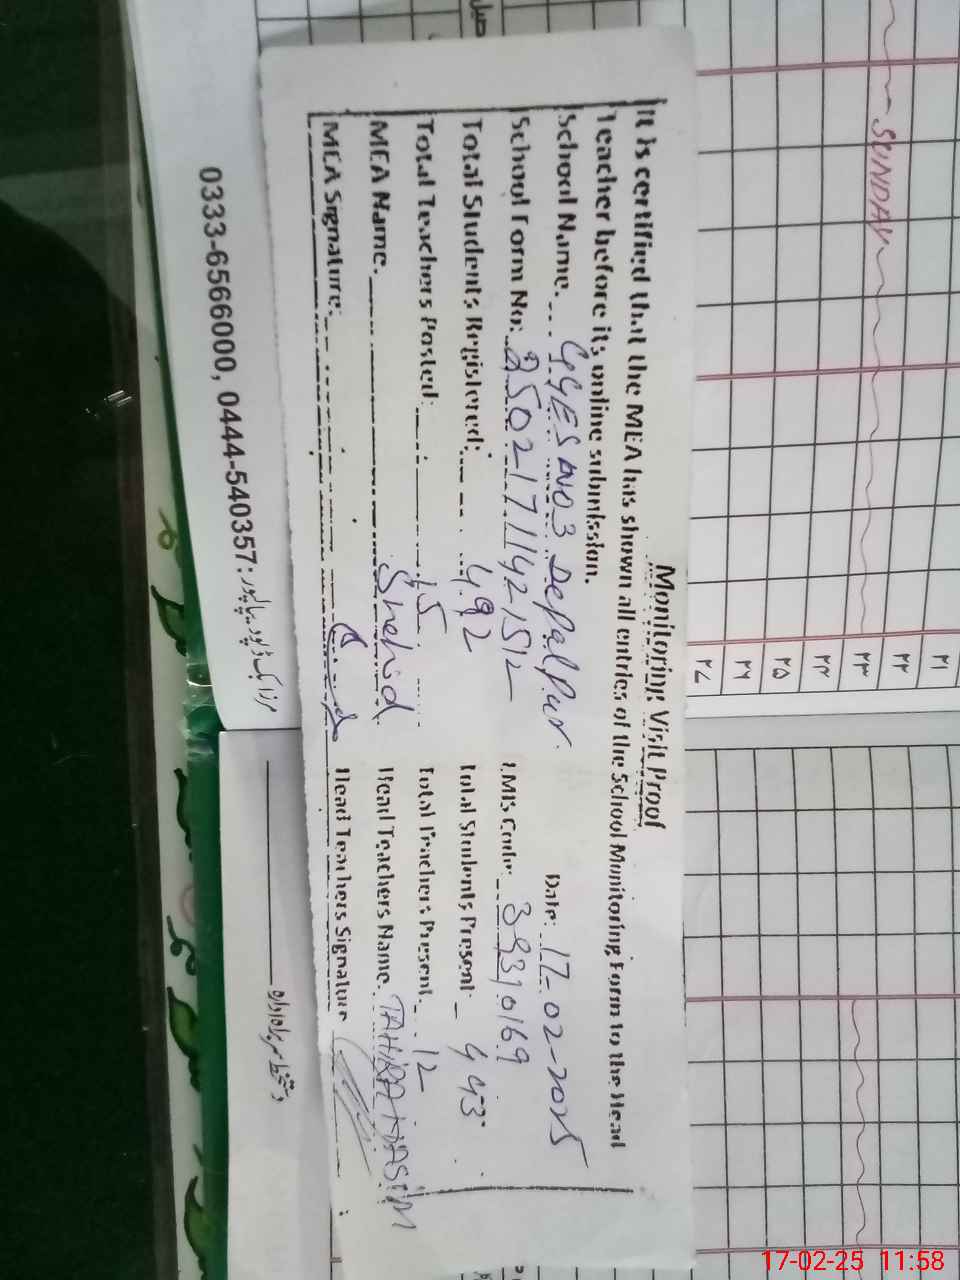 Monitoring Visit Proof
It is certified that the MEA has shown all entries of the School Monitoring Form to the Head
Teacher before its online submission.
Date: 17-02-2025
School Name. GGES NO3 Depalpur.
School Form No: 25021711421512
EMIS Code: 39310169
Total Students Registered: 492
Total Students Present 443
Total Teachers Posted: 15
Total Teachers Present 12
MEA Name. Shahid
Head Teachers Name TAHIRA
MEA Signature:
Head Teachers Signature
0333-6566000, 0444-540357:
SUNDAY
۲۱
۲۲
۲۳
۲۴
۲۵
۲۶
۲۷
17-02-25 11:58